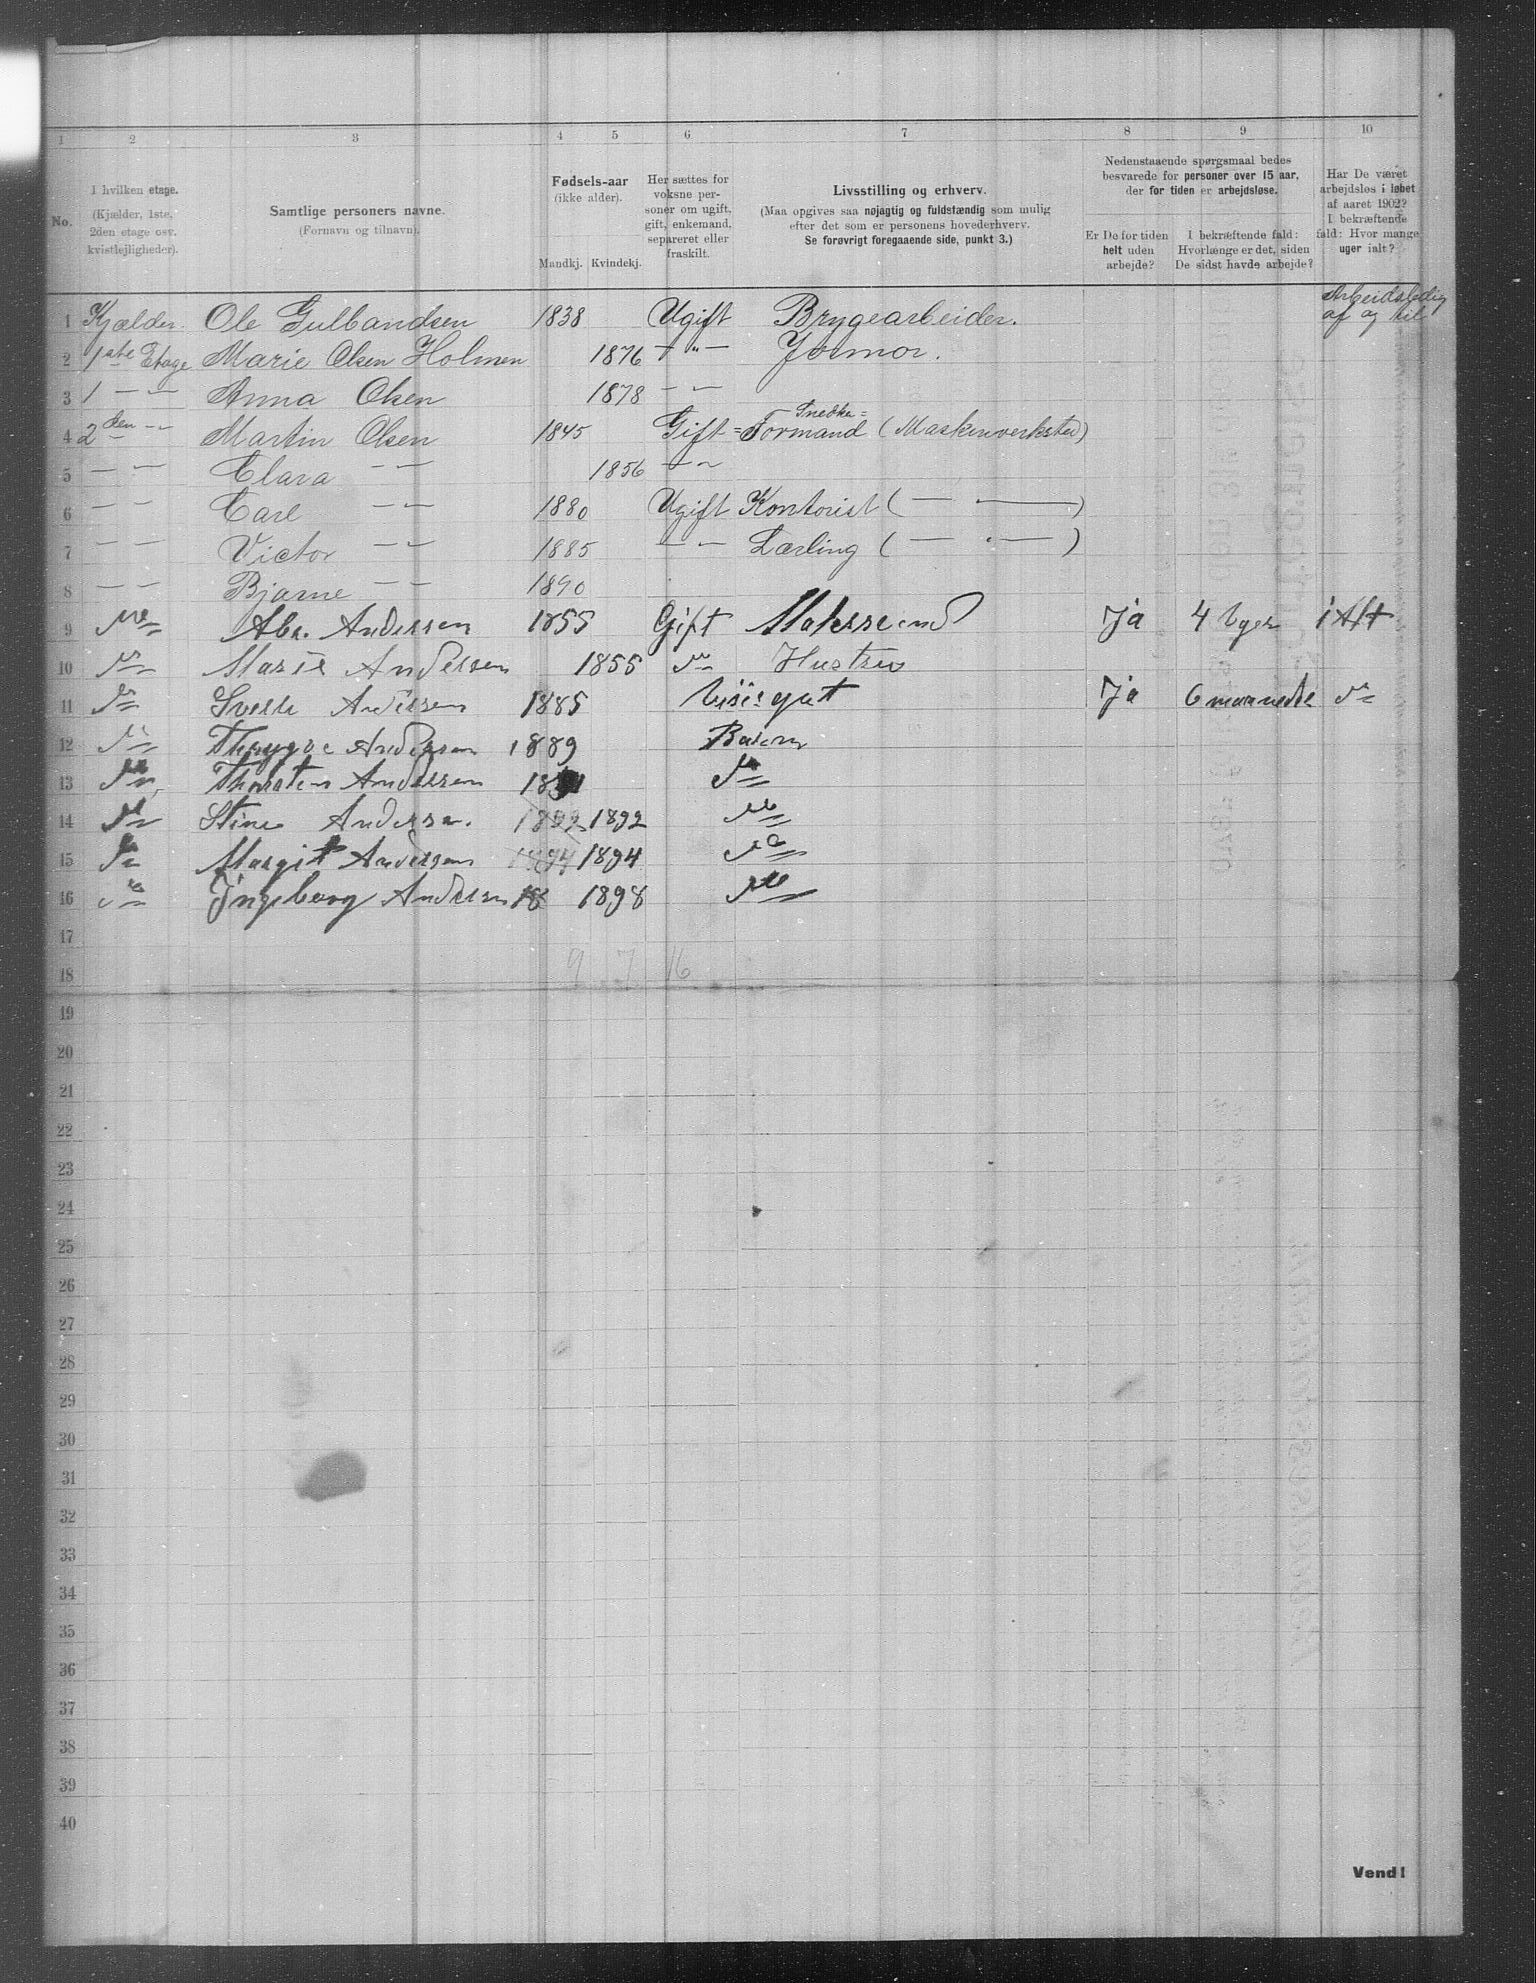 1 2 3 4 5 6 7 8 9 10
No.
I hvilken etage.
(Kjælder, 1ste,
2den etage osv.
kvistlejligheder).
Samtlige personers navne.
(Fornavn og tilnavn).
Fødsels-aar
(ikke alder).
Mandkj. Kvindekj.
Her sættes for
voksne per-
soner om ugift,
gift, enkemand,
separeret eller
fraskilt.
Livsstilling og erhverv.
(Maa opgives saa nøjagtig og fuldstændig som mulig
efter det som er personens hovederhverv.
Se forøvrigt foregaaende side, punkt 3.)
Nedenstaaende spørgsmaal bedes
besvarede for personer over 15 aar,
der for tiden er arbejdsløse.
Er De for tiden
helt uden
arbejde?
I bekræftende fald:
Hvorlænge er det, siden
De sidst havde arbejde?
Har De været
arbejdsløs i løbet
af aaret 1902?
I bekræftende
fald: Hvor mange
uger ialt?
1 Kjælder. Ole Gulbandsen 1838 Ugift Brygearbeider. Arbeidsledig
af og til
2 1ste Etage Marie Olsen Holmen 1876 — " — Jormor.
3 1 — — Anna Olsen 1878 — —
4 2den — — Martin Olsen 1845 Gift = Snedker=
Formand (Maskinverksted)
5 — — Clara — — 1856 — —
6 — — Carl — — 1880 Ugift Kontorist ( — . — )
7 — — Victor — — 1885 — — Lærling ( — . — )
8 — — Bjarne — — 1890
9 Do Abr. Andersen 1855 Gift Malersvend Ja 4 Uger i Alt
10 Do Marie Andersen 1855 Do Hustru
11 Do Sverre Andersen 1885 Visergut Ja 6 maaneder Do
12 Do Thrygve Andersen 1889 Barn
13 Do Thorsten Andersen Do
14 Do Stine Andersen. 1892 1892 Do
15 Do Margit Andersen 1894 1894 Do
16 Do Ingeborg Andersen 18 1898 Do
17
18 9 7 16
19
20
21
22
23
24
25
26
27
28
29
30
31
32
33
34
35
36
37
38
39
40
Vend!